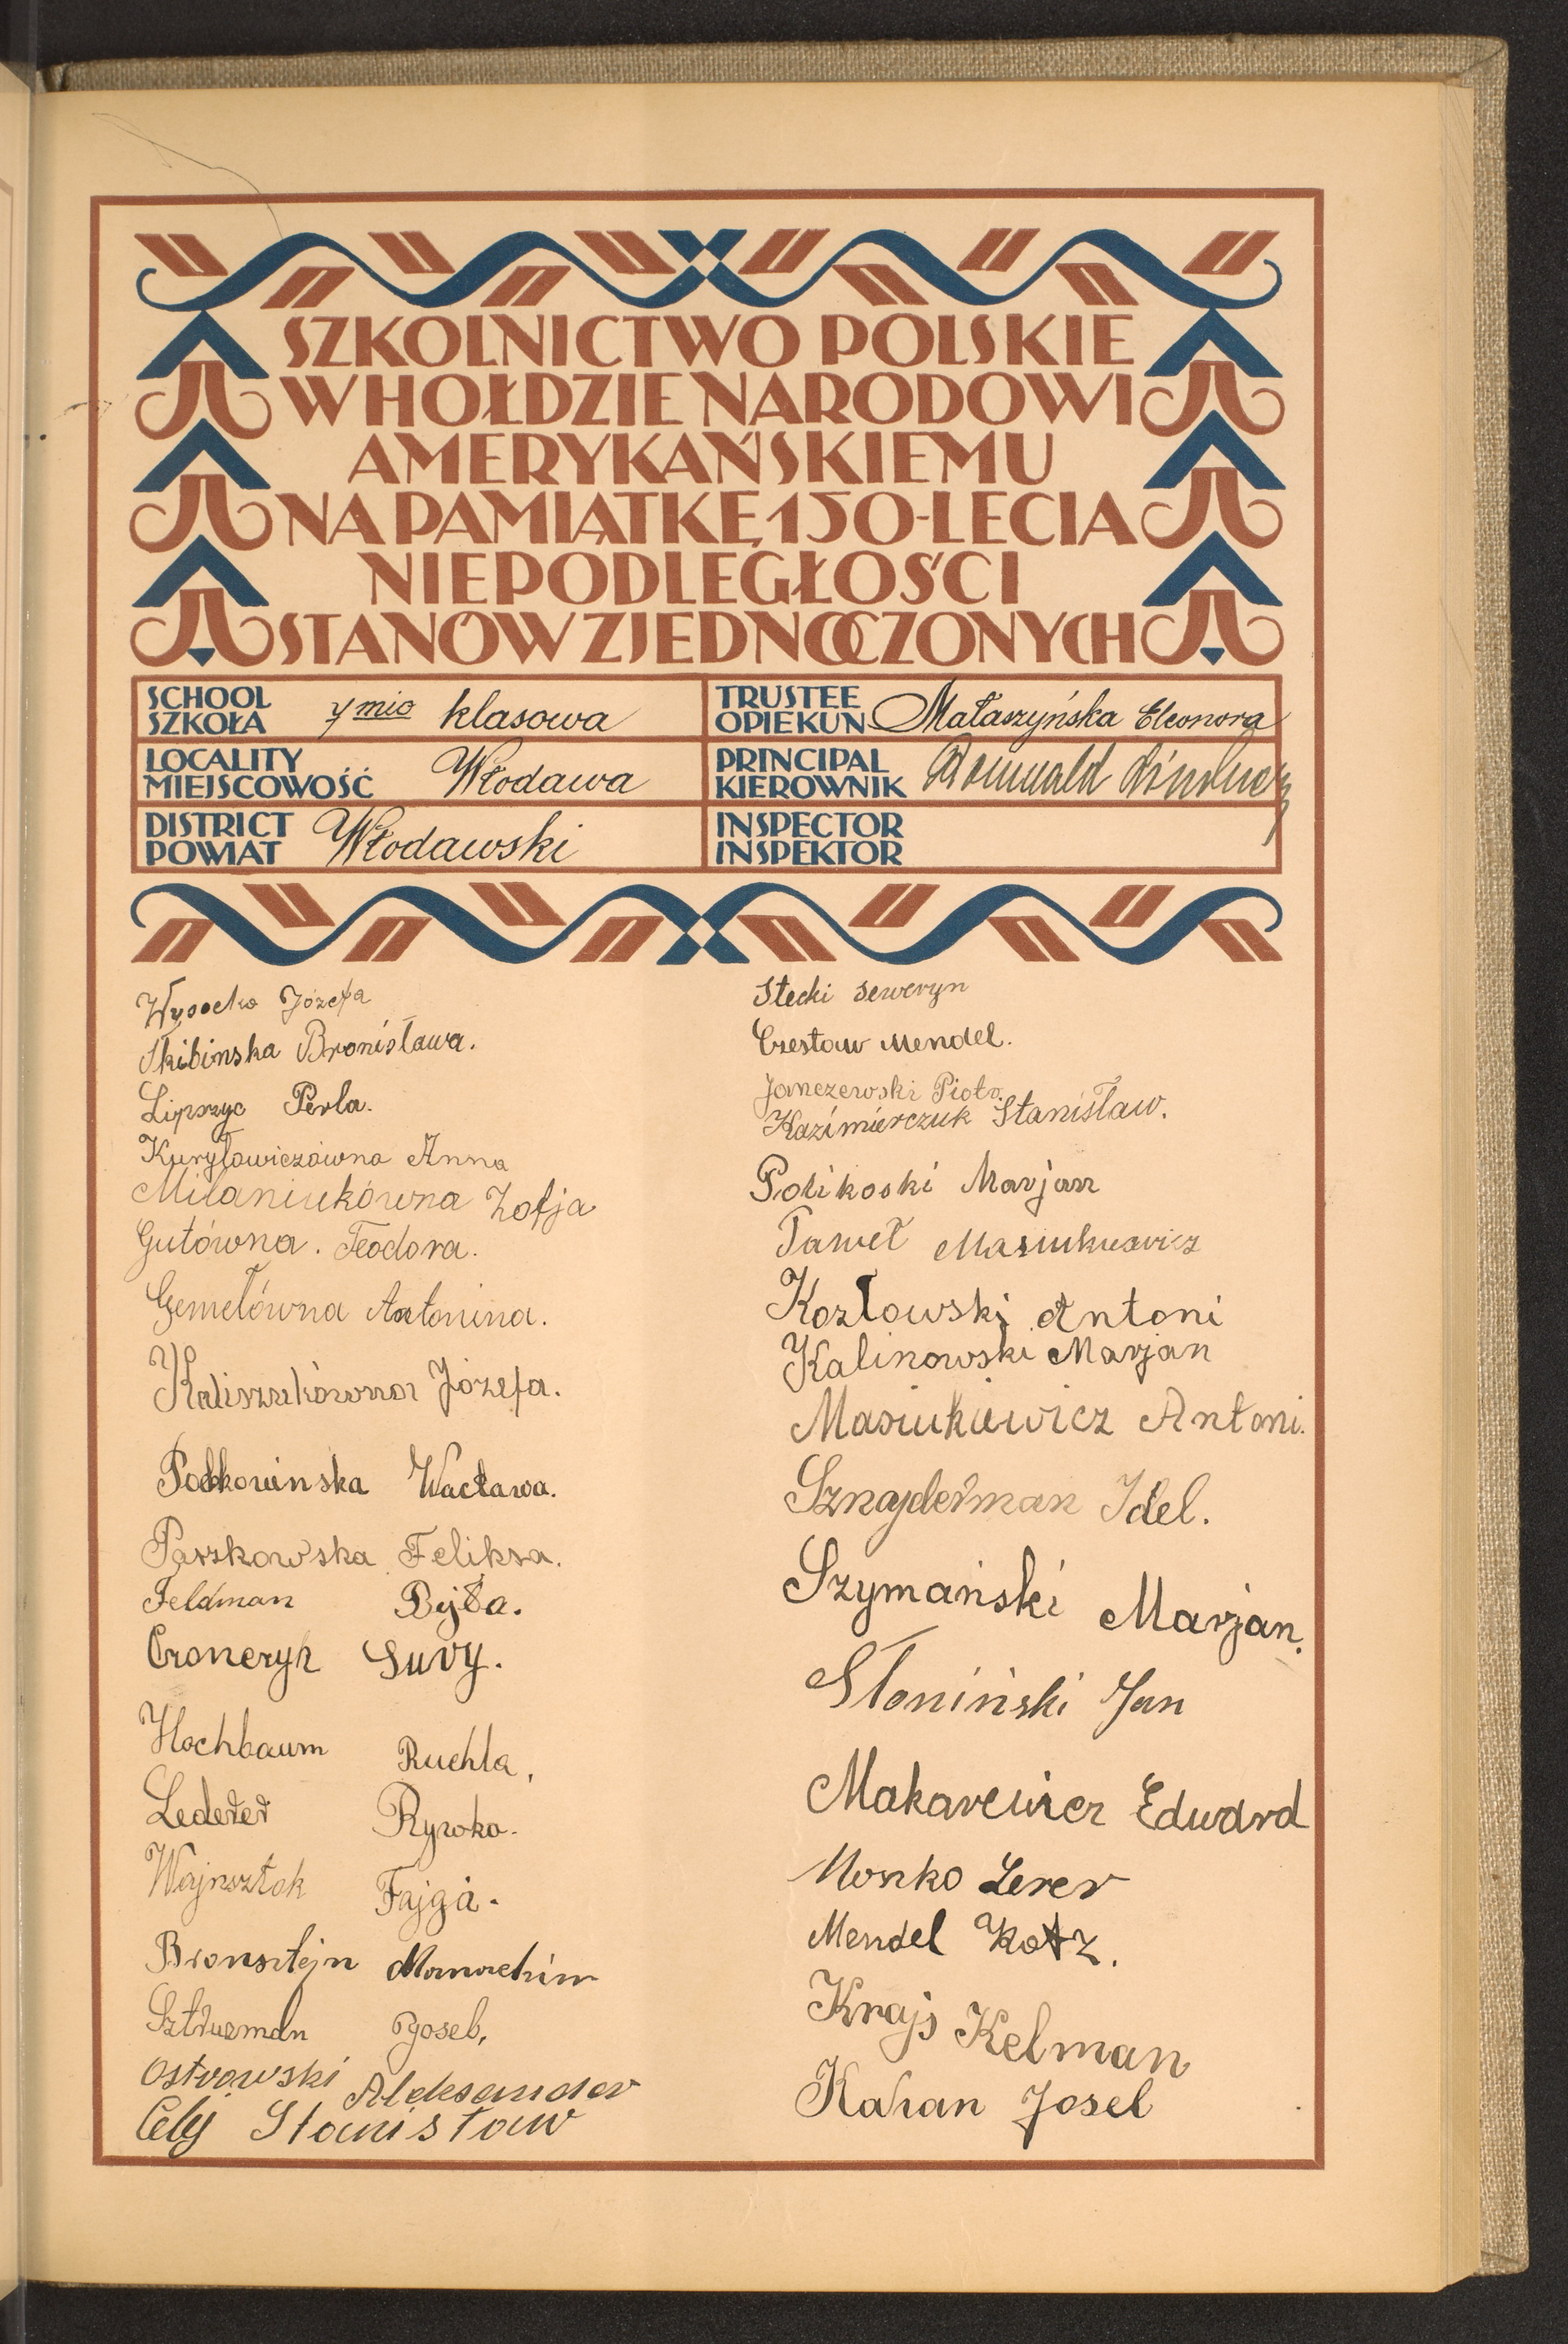 SZKOLNICTWO POLSKIE
W HOŁDZIE NARODOWI
AMERYKAŃSKIEMU
NA PAMIĄTKĘ 150-LECIA
NIEPODLEGŁOŚCI
STANÓW ZJEDNOCZONYCH
SCHOOL
SZKOŁA
7 mio klasowa
TRUSTEE
OPIEKUN
Małaszyńska Eleonora
LOCALITY
MIEJSCOWOŚĆ
Włodawa
PRINCIPAL
KIEROWNIK
Romuald
DISTRICT
POWIAT
Włodawski
INSPECTOR
INSPEKTOR
Wysocka Józefa
Skibinska Bronisława.
Lipszyc Perla.
Kuryłowiczówna Anna
Milaniukówna Zofja
Gutówna. Teodora.
Gemełówna Antonina.
Kaliszukówna Józefa.
Podkowinska Wacława.
Paszkowska Feliksa.
Feldman Bejła.
Croneryk Sury.
Hochbaum Ruchla,
Lederer Rywka.
Wajnsztok Fajga.
Bronsztejn Monachim
Szturman Joseb,
Ostrowski Aleksander
Cely Stanisław
Stecki Seweryn
Czesław Mendel.
Janczewski Piotr.
Kazimierczuk Stanisław.
Polikoski Marjan
Paweł Masiukiewicz
Kozłowski Antoni
Kalinowski Marjan
Masiukiewicz Antoni.
Sznajderman Idel.
Szymański Marjan.
Słoniński Jan
Makarewicz Edward
Moszko Lerer
Mendel Kotz.
Krajs Kelman
Kahan Josel